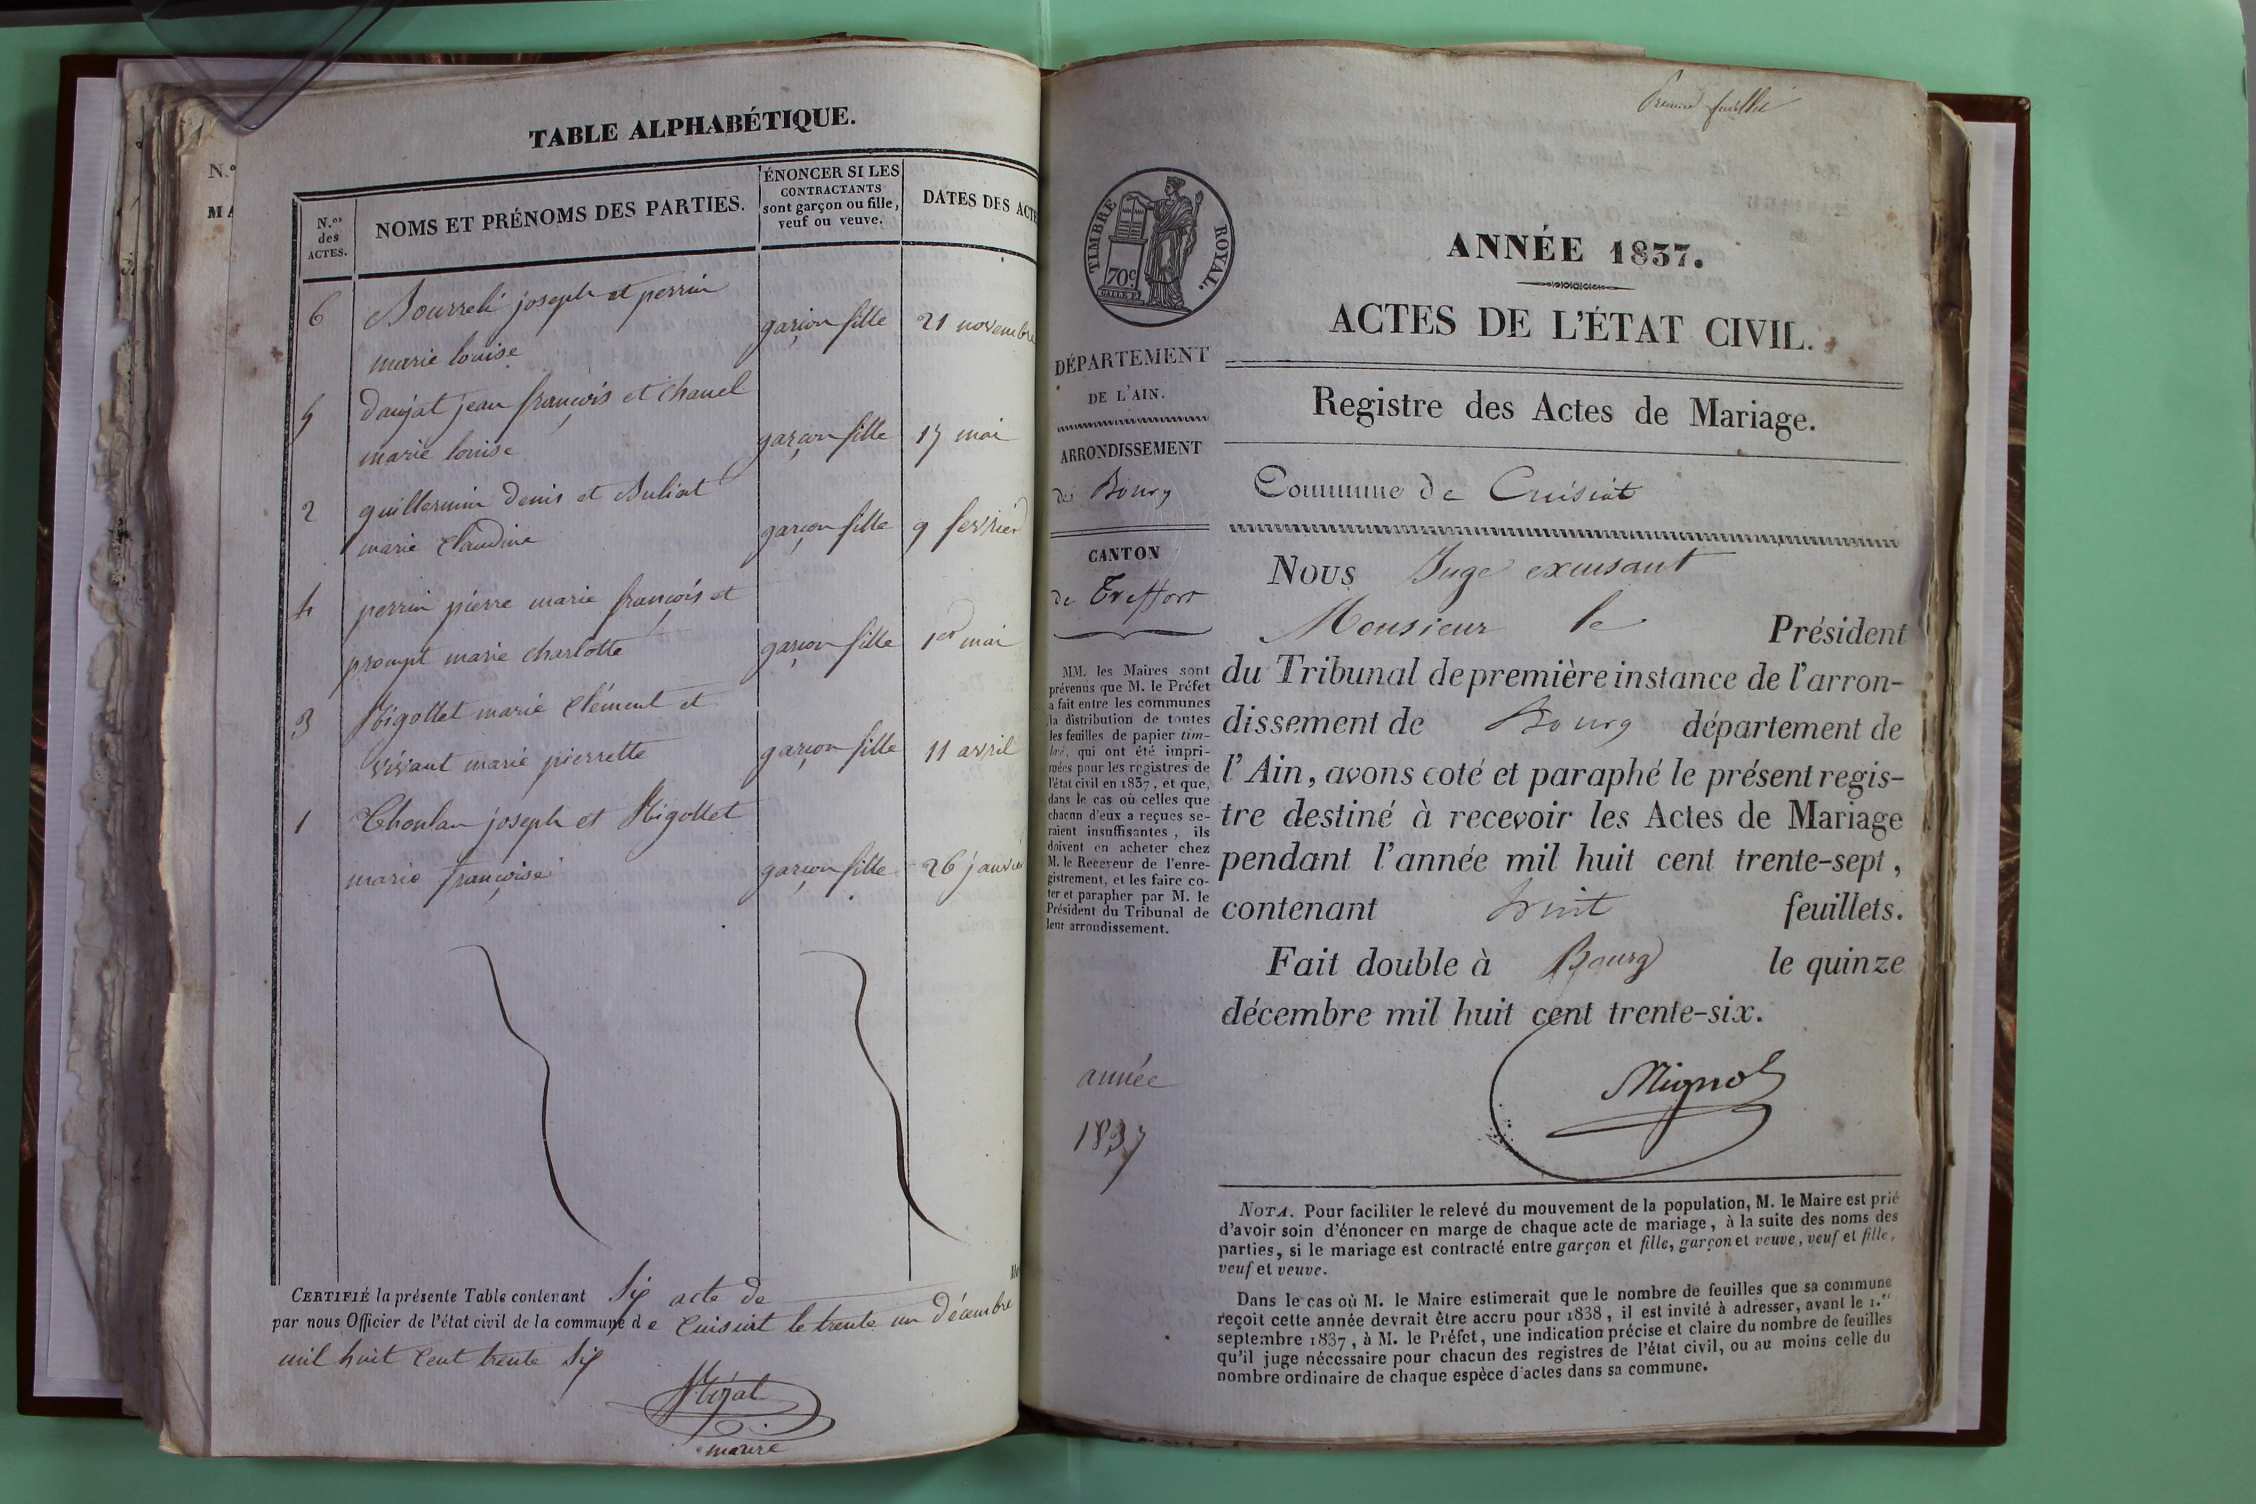 N.º
MA
TABLE ALPHABÉTIQUE.
N.os des ACTES.
NOMS ET PRÉNOMS DES PARTIES.
ÉNONCER SI LES
CONTRACTANTS
sont garçon ou fille,
veuf ou veuve.
DATES DES ACTE
6 joseph et perrin
marie louise garçon fille 21 novembre
5 daujat jean françois et Chanel
marie louise garçon fille 17 mai
2 guillermin Denis et Buliat
marie Claudine garçon fille 9 fevrier
4 perrin pierre marie françois et
prompt marie charlotte garçon fille 1er mai
3 Rigollet marie Clément et
vivant marie pierrette garçon fille 11 avril
1 joseph et Rigollet
marie françoise garçon fille 26 janvie
CERTIFIÉ la présente Table contenant Six acte de
par nous Officier de l'état civil de la commune de Cuisiat le trente un décembre
mil huit Cent trente Six
maire
Premier feuillet
TIMBRE ROYAL.
70c
ANNÉE 1837.
ACTES DE L'ÉTAT CIVIL.
Registre des Actes de Mariage.
DÉPARTEMENT
DE L'AIN.
ARRONDISSEMENT
de Bourg
CANTON
de Treffort
MM. les Maires sont
prévenus que M. le Préfet
a fait entre les communes
la distribution de toutes
les feuilles de papier tim-
bré, qui ont été impri-
mées pour les registres de
l'état civil en 1837, et que,
dans le cas où celles que
chacun d'eux a reçues se-
raient insuffisantes, ils
doivent en acheter chez
M. le Receveur de l'enre-
gistrement, et les faire co-
ter et parapher par M. le
Président du Tribunal de
leur arrondissement.
année
1837
Commune de Cuisiat
NOUS Juge excusant
Monsieur le Président
du Tribunal de première instance de l'arron-
dissement de Bourg département de
l'Ain, avons coté et paraphé le présent regis-
tre destiné à recevoir les Actes de Mariage
pendant l'année mil huit cent trente-sept,
contenant huit feuillets.
Fait double à Bourg le quinze
décembre mil huit cent trente-six.
NOTA. Pour faciliter le relevé du mouvement de la population, M. le Maire est prié
d'avoir soin d'énoncer en marge de chaque acte de mariage, à la suite des noms des
parties, si le mariage est contracté entre garçon et fille, garçon et veuve, veuf et fille,
veuf et veuve.
Dans le cas où M. le Maire estimerait que le nombre de feuilles que sa commune
reçoit cette année devrait être accru pour 1838, il est invité à adresser, avant le 1.er
septembre 1837, à M. le Préfet, une indication précise et claire du nombre de feuilles
qu'il juge nécessaire pour chacun des registres de l'état civil, ou au moins celle du
nombre ordinaire de chaque espèce d'actes dans sa commune.